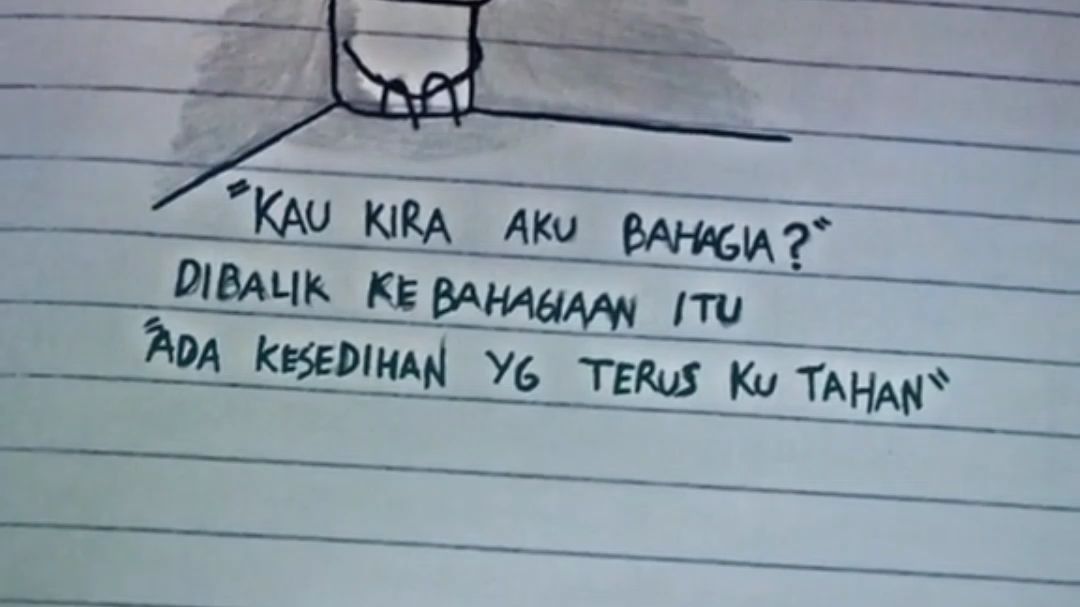 "KAU KIRA AKU BAHAGIA?"
DIBALIK KEBAHAGIAAN ITU
"ADA KESEDIHAN YG TERUS KU TAHAN"